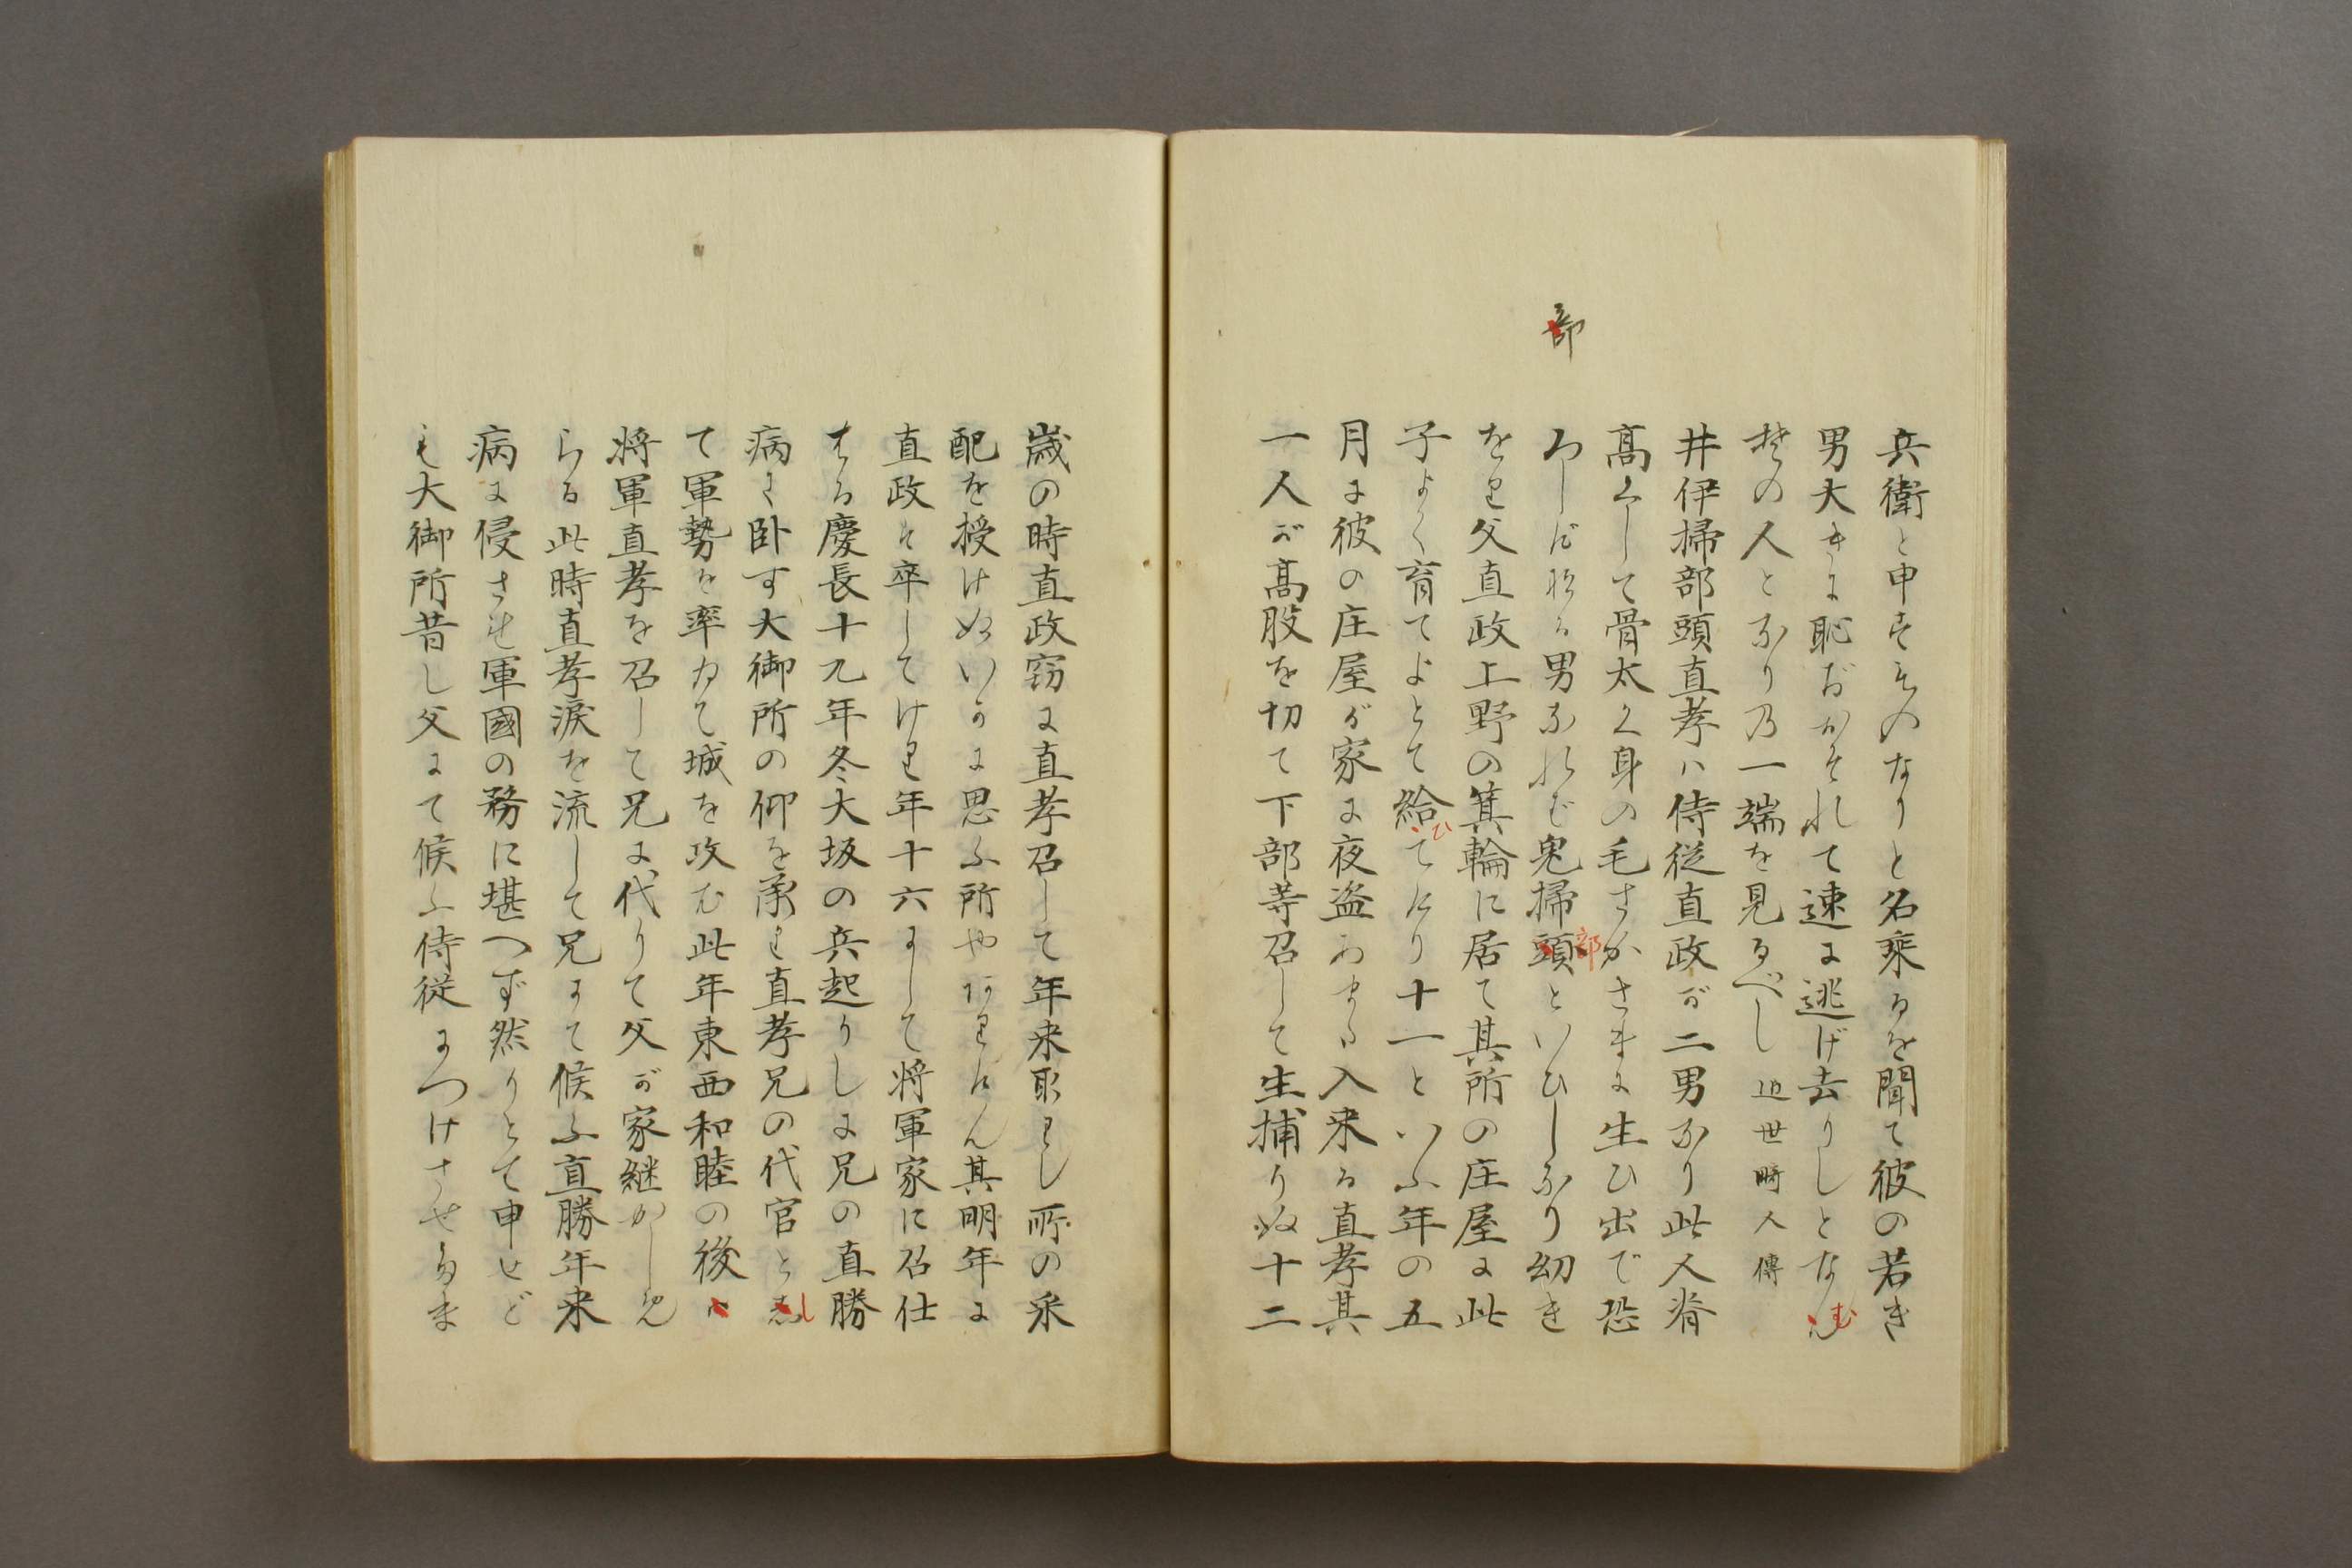 部
兵衛と申す者のなりと名乗るを聞て彼の若き
男大きに恥おかそれて速に逃げ去りしとなん
む
其の人となり乃一端を見るべし 近世畸人傳
井伊掃部頭直孝ハ侍従直政が二男なり此人脊
高くして骨太く身の毛さかさまに生ひ出で恐
ろしげなる男なれば鬼掃頭といひしなり幼き
部
をり父直政上野の箕輪に居て其所の庄屋に此
子よく育てよとて給てけり十一といふ年の五
ひ
月に彼の庄屋が家に夜盗あまた入来る直孝其
一人が高股を切て下部等召して生捕りぬ十二
歳の時直政窃に直孝召して年来取りし所の采
配を授けぬいかに思ふ所やありけん其明年に
直政は卒してけり年十六にして将軍家に召仕
はる慶長十九年冬大坂の兵起りしに兄の直勝
病に臥す大御所の仰を承り直孝兄の代官と
し
て軍勢を率ゐて城を攻む此年東西和睦の後
将軍直孝を召して兄に代りて父が家継がしめ
らる此時直孝涙を流して兄にて候ふ直勝年来
病に侵され軍國の務に堪へず然りとて申せど
も大御所昔し父にて候ふ侍従につけさせ給ま